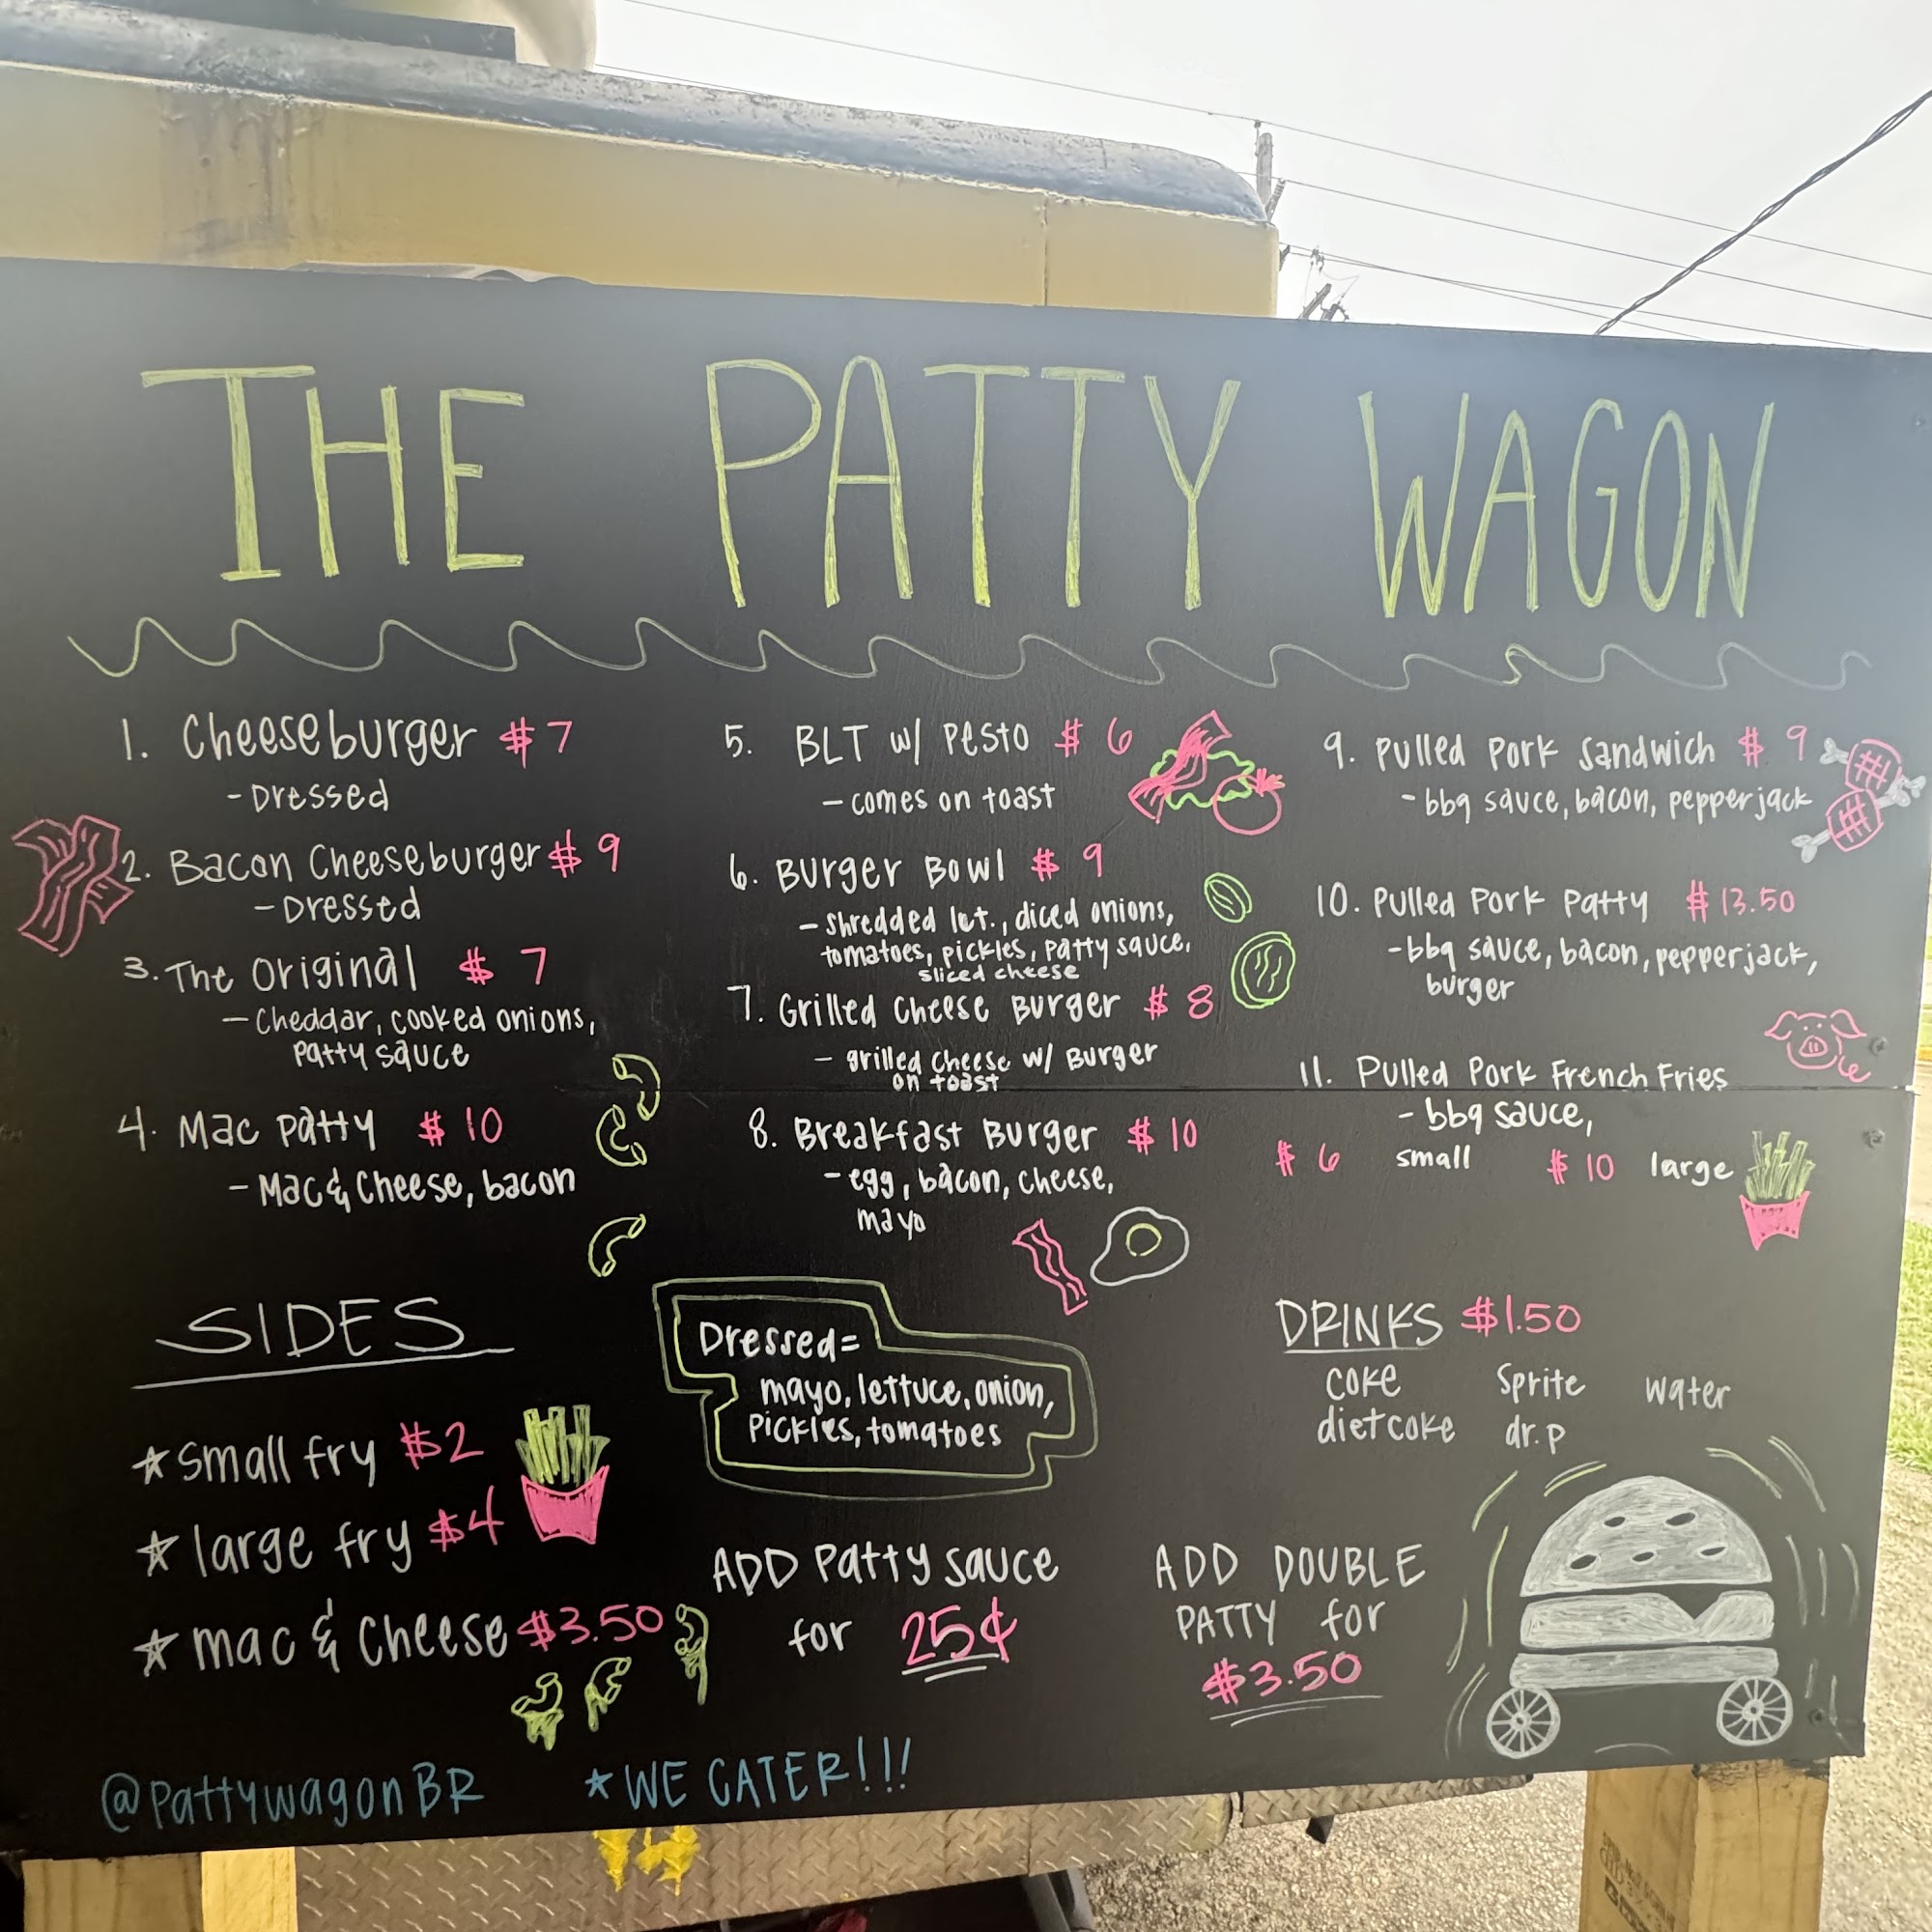 THE PATTY WAGON
1. Cheeseburger $7
- Dressed
2. Bacon Cheeseburger $9
- Dressed
3. The Original $7
- Cheddar, cooked onions,
patty sauce
4. Mac Patty $10
- Mac & Cheese, bacon
5. BLT w/ Pesto $6
- comes on toast
6. Burger Bowl $9
- shredded let., diced onions,
tomatoes, pickles, patty sauce,
sliced cheese
7. Grilled Cheese Burger $8
- grilled cheese w/ Burger
on toast
8. Breakfast Burger $10
- egg, bacon, cheese,
mayo
9. Pulled Pork Sandwich $9
- bbq sauce, bacon, pepperjack
10. Pulled Pork Patty $13.50
- bbq sauce, bacon, pepperjack,
burger
11. Pulled Pork French Fries
- bbq sauce,
$6 small $10 large
SIDES
★ small fry $2
★ large fry $4
★ mac & cheese $3.50
Dressed =
mayo, lettuce, onion,
pickles, tomatoes
ADD Patty sauce
for 25¢
DRINKS $1.50
coke Sprite water
diet coke dr. p
ADD DOUBLE
PATTY for
$3.50
@pattywagonBR *WE CATER!!!